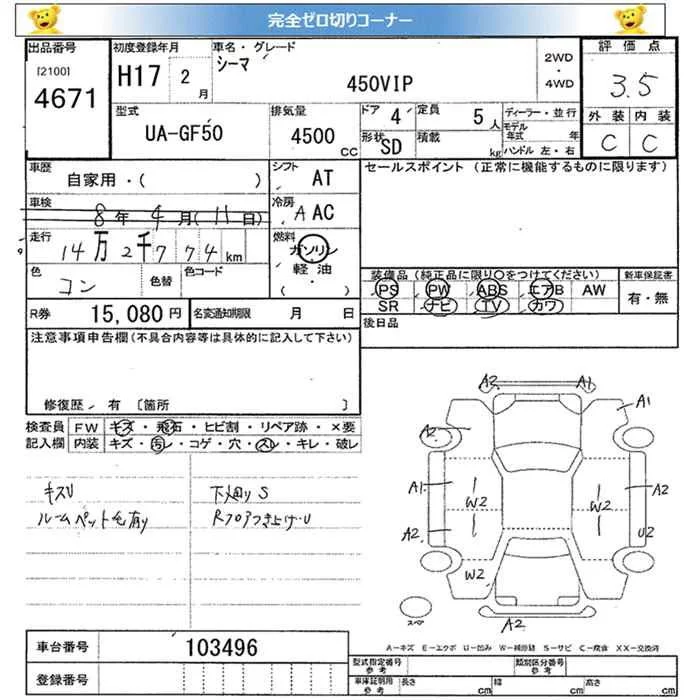 完全ゼロ切りコーナー
出品番号 初度登録年月 車名・グレード 評価点
[2100] 4671 H17 2月 シーマ 450VIP 2WD・4WD 3.5
型式 排気量 ドア 4 定員 5人 ディーラー・並行 外装 内装
UA-GF50 4500cc 形状 SD 積載 kg モデル年式 年 ハンドル 左・右 C C
車歴 シフト セールスポイント (正常に機能するものに限ります)
自家用・( ) AT
車検 冷房
8年 4月(11日) A AC
走行 燃料
14万2千774km ガソリン
色 色替 色コード 軽油 装備品(純正品に限り○をつけてください) 新車保証書
コン (・) PS PW ABS エアB AW 有・無
R券 15,080円 名変通知期限 月 日 SR ナビ TV カワ
注意事項申告欄(不具合内容等は具体的に記入して下さい) 後日品
修復歴 有 〔箇所 〕
検査員 FW キズ・飛石・ヒビ割・リペア跡・×要
記入欄 内装 キズ・汚レ・コゲ・穴・スレ・キレ・破レ
キズU 下廻りS
ルームペット毛有り Rフロアつき上げ・U
A2 A1
A1
A2
A1 W2 W2 A2
A2 U2
W2
スペア A2
車台番号 103496
A-キズ E-エクボ U-凹み W-補修跡 S-サビ C-腐食 XX-交換済
登録番号 型式指定番号 参考 類別区分番号 参考
車庫証明用 参考 長さ cm 幅 cm 高さ cm